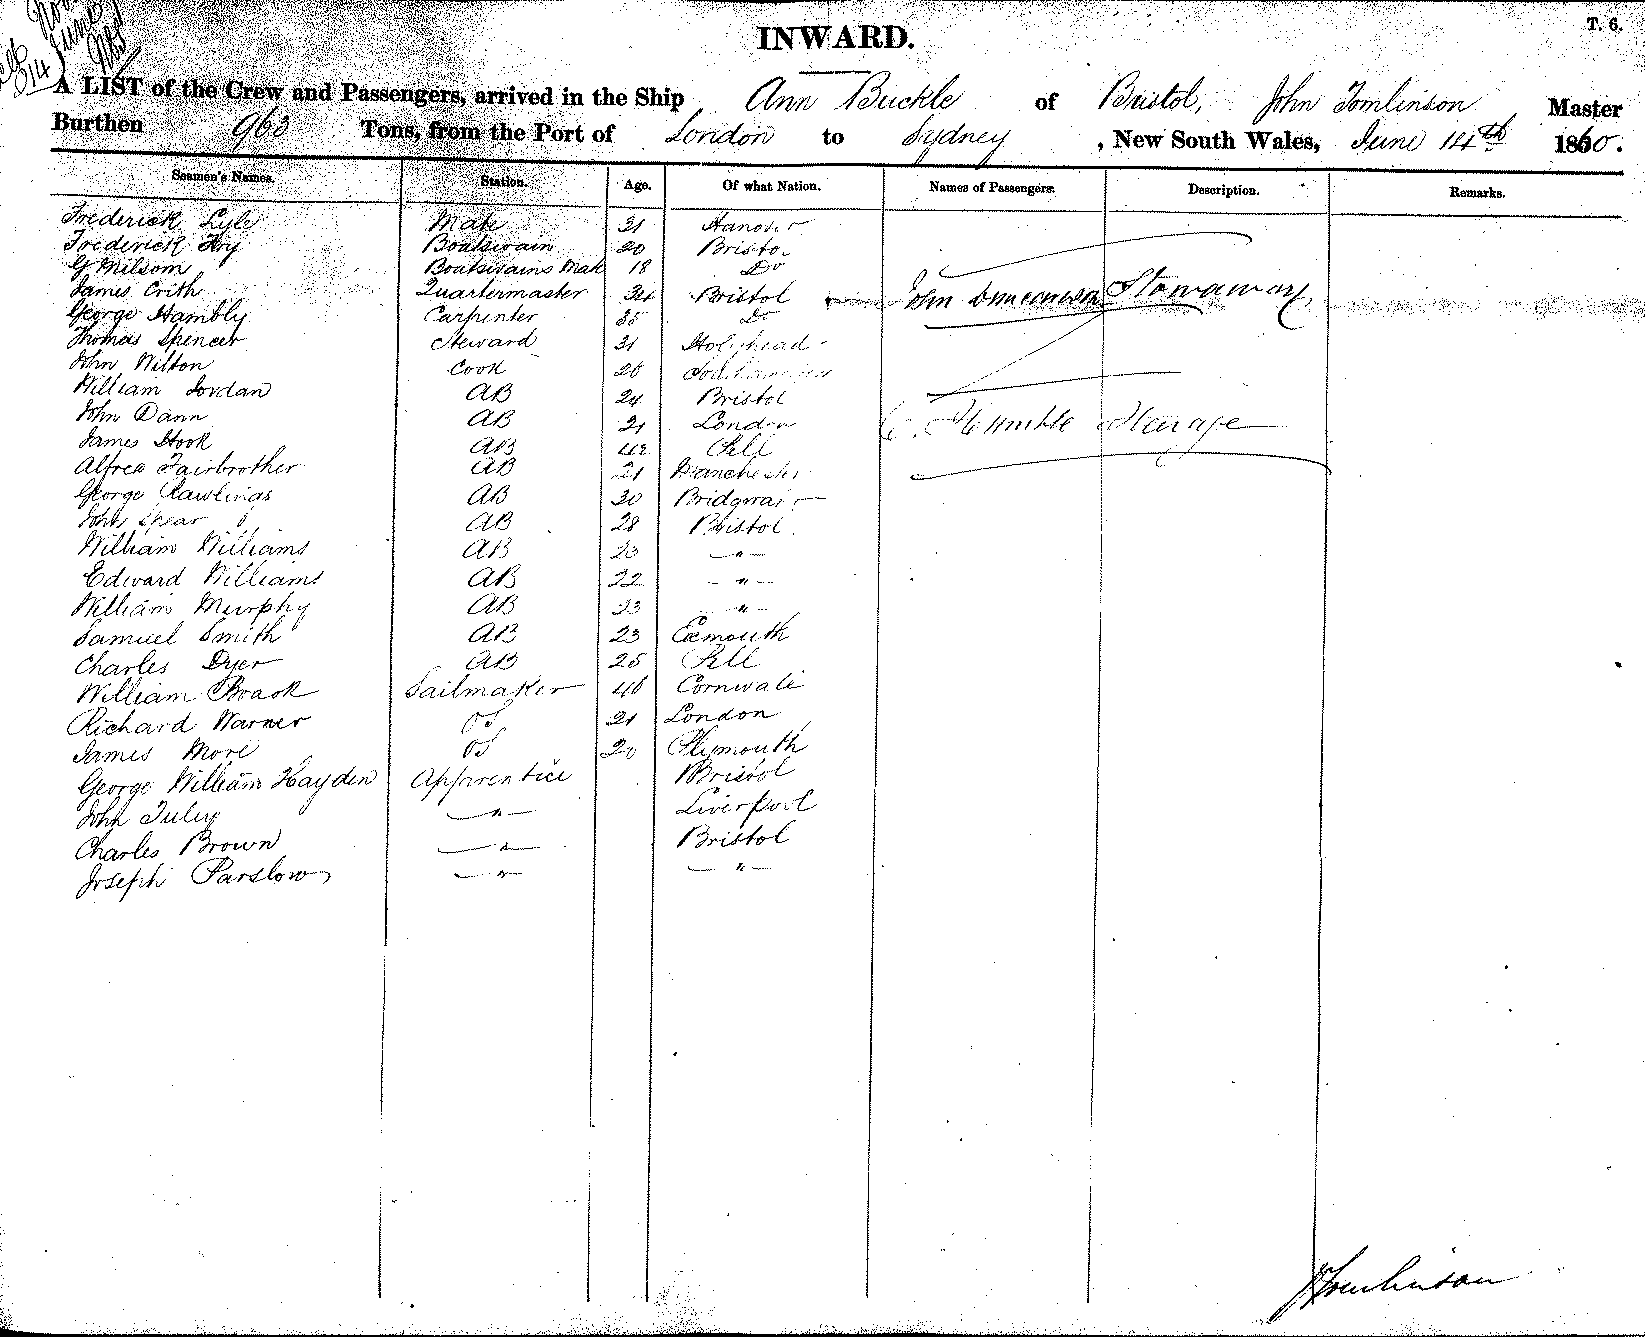 T. 6.
INWARD.
A LIST of the Crew and Passengers, arrived in the Ship Ann Buckle of Bristol, John Tomlinson Master
Burthen 963 Tons, from the Port of London to Sydney, New South Wales, June 14th 1860.
Seamen's Names. Station. Age. Of what Nation. Names of Passengers. Description. Remarks.
Frederick Lyle Mate 31 Hanover
Frederick Fry Boatswain 20 Bristol
G Milsom Boatswains Mate 18 Do
James Crith Quartermaster 34 Bristol John Stowaway
George Hambly Carpenter 35 Do
Thomas Spencer Steward 31 Holyhead
John Wilton Cook 26
William Jordan AB 24 Bristol
John Dann AB 21 London Humble Steerage
James Hook AB 42 Pill
Alfred Fairbrother AB 21 Manchester
George Rawlings AB 30 Bridgwater
John Spear AB 28 Bristol
William Williams AB 23 — " —
Edward Williams AB 22 — " —
William Murphy AB 23 — " —
Samuel Smith AB 23 Exmouth
Charles Dyer AB 25 Pill
William Brack Sailmaker 46 Cornwall
Richard Warner OS 21 London
James More OS 20 Plymouth
George William Hayden Apprentice Bristol
John Tuley — " — Liverpool
Charles Brown — " — Bristol
Joseph Parslow — " — — " —
J Tomlinson